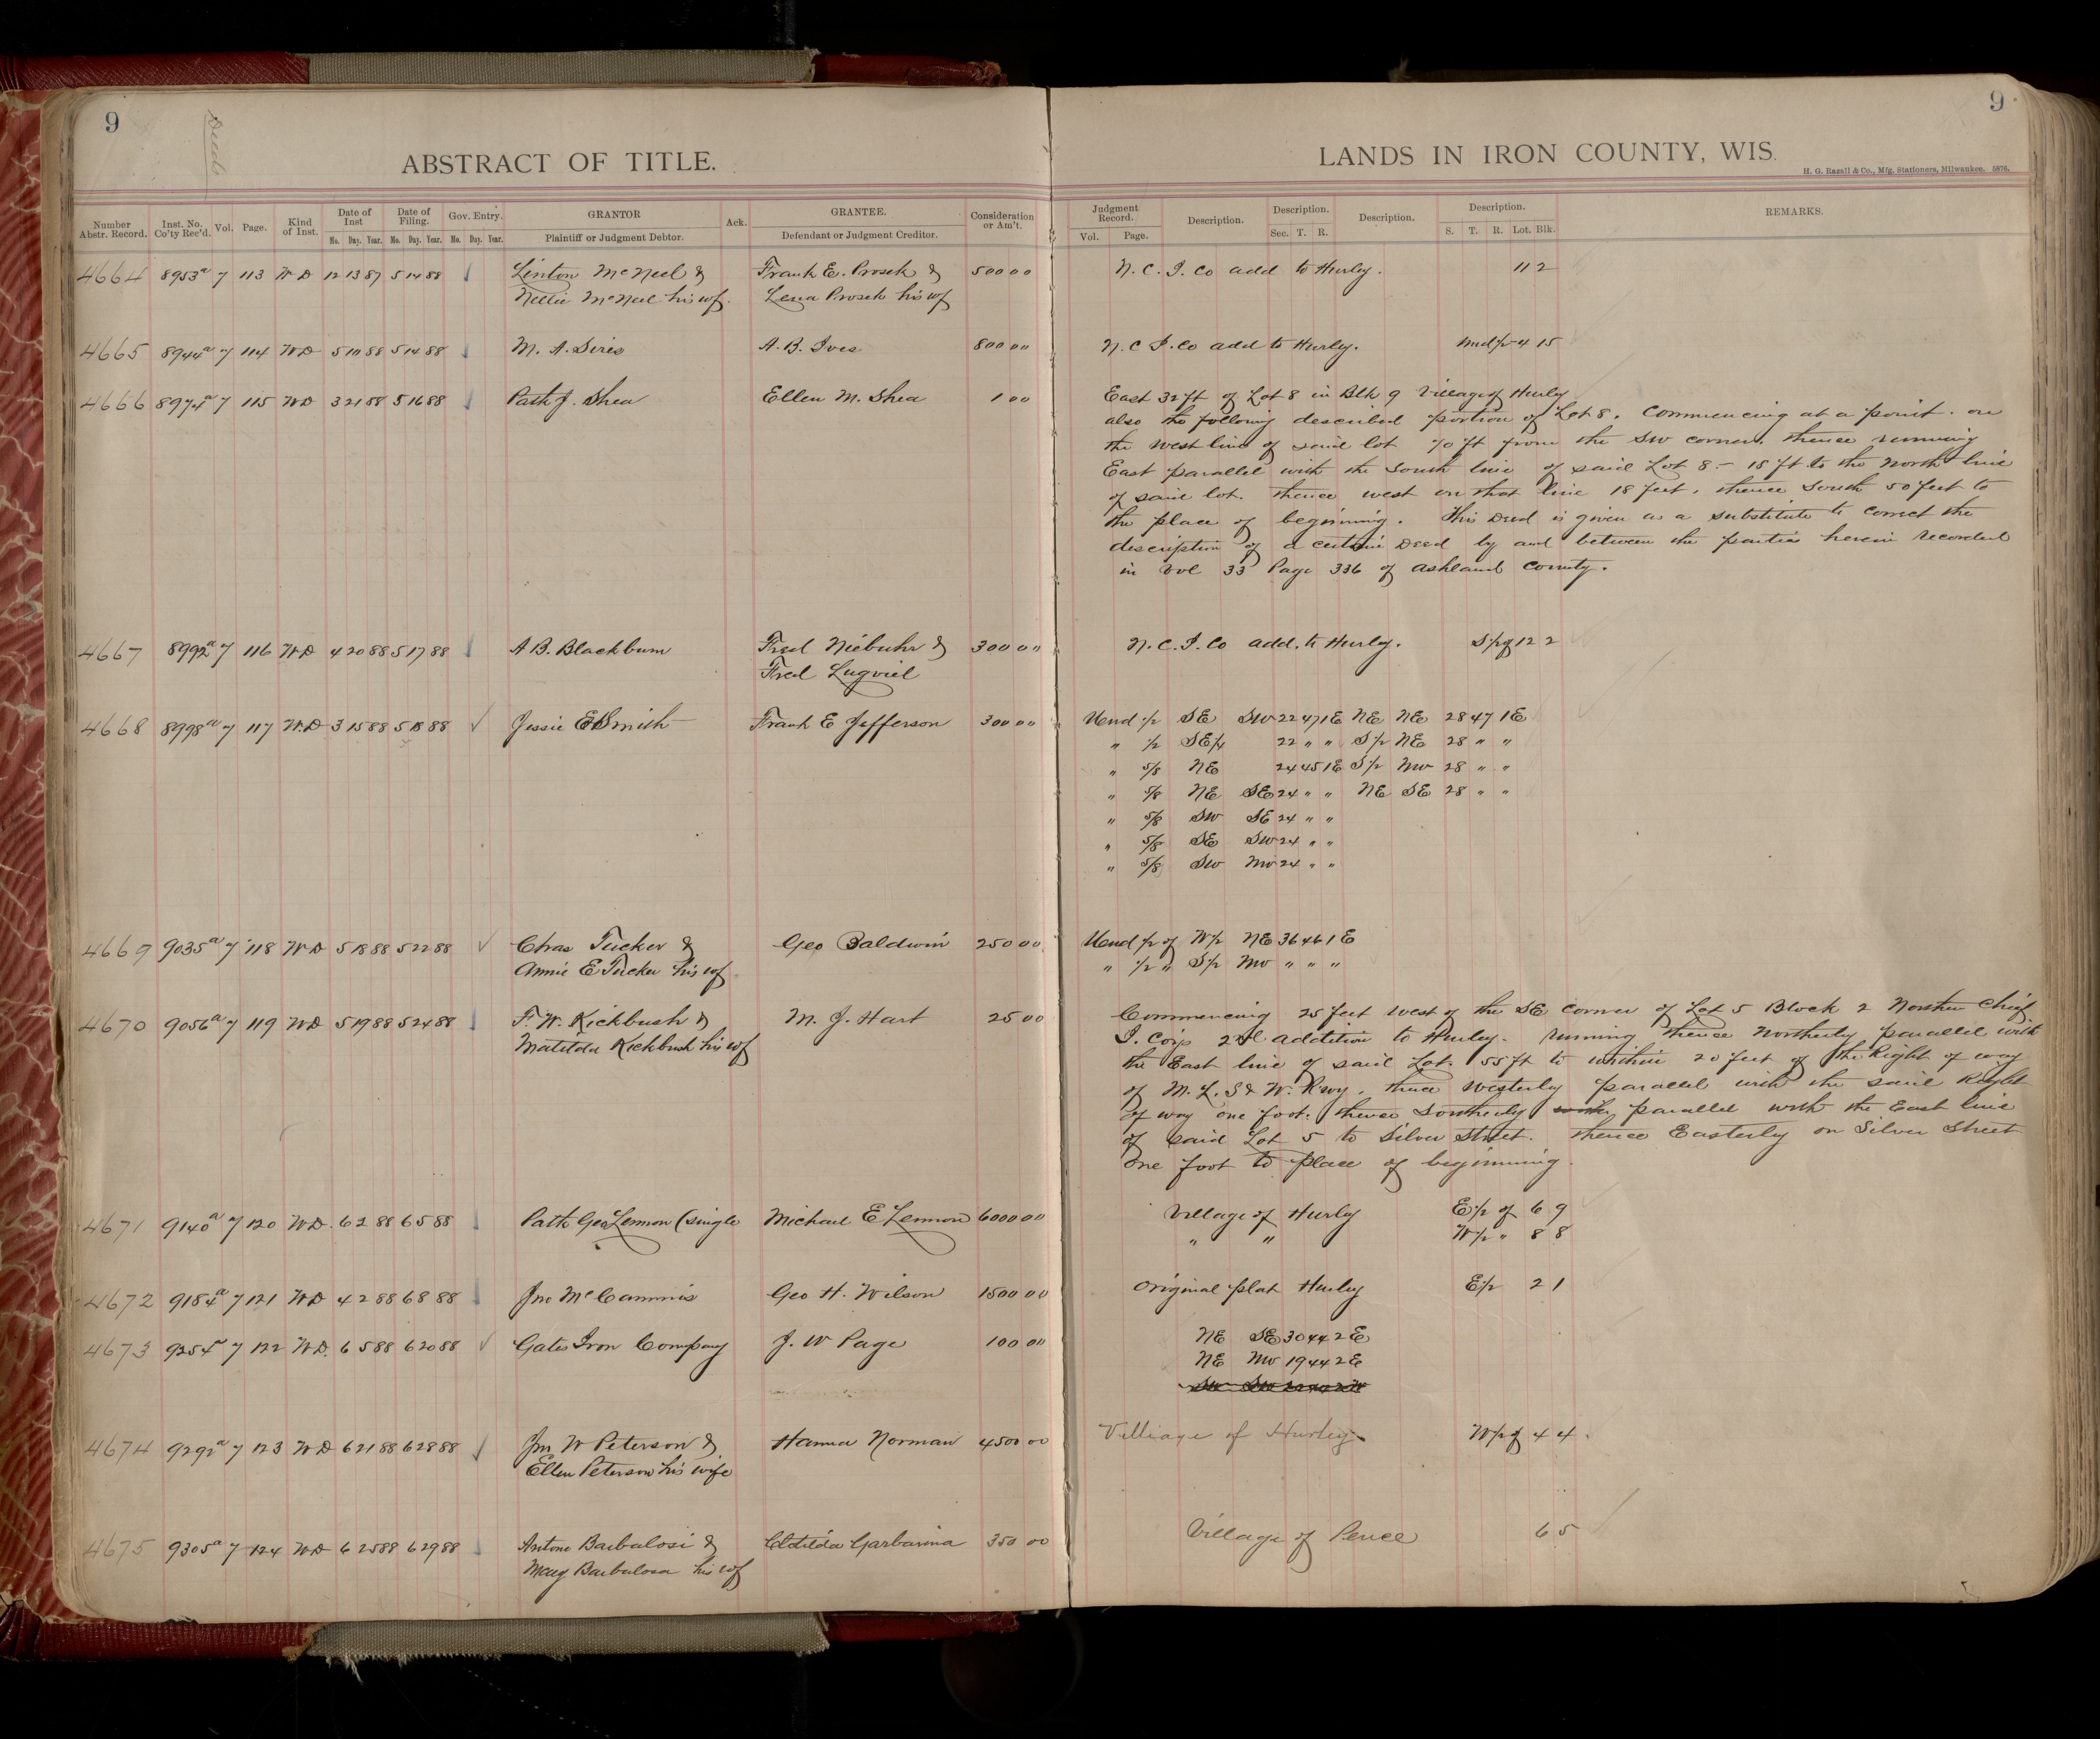 9
Deeds
9
ABSTRACT OF TITLE.
LANDS IN IRON COUNTY, WIS.
H. G. Razall & Co., Mfg. Stationers, Milwaukee, 5876.
Number Abstr. Record. Inst. No. Co'ty Rec'd. Vol. Page. Kind of Inst. Date of Inst Mo. Day. Year. Date of Filing. Mo. Day. Year. Gov. Entry. Mo. Day. Year. GRANTOR Plaintiff or Judgment Debtor. Ack. GRANTEE. Defendant or Judgment Creditor. Consideration or Am't. Judgment Record. Vol. Page. Description. Description. Sec. T. R. Description. Description. S. T. R. Lot. Blk. REMARKS.
4664 8953a 7 113 W D 12 13 87 5 14 88 Linton McNeel & Frank E. Prosek & 500 00 N. C. I. Co add to Hurley. 11 2
Nellie McNeel his wf. Lena Prosek his wf
4665 8944a 7 114 W D 5 10 88 5 14 88 M. A. Sires A. B. Ives 800 00 N. C I. Co add to Hurley. und 1/2 4 15
4666 8974a 7 115 W D 3 21 88 5 16 88 Patk J. Shea Ellen M. Shea 1 00 East 32 ft of Lot 8 in Blk 9 Village of Hurley
also the following described portion of Lot 8. Commencing at a point on
the West line of said lot 70 ft from the SW corner, thence running
East parallel with the South line of said Lot 8 - 18 ft to the North line
of said lot. thence west on that line 18 feet, thence South 50 feet to
the place of beginning. This Deed is given as a substitute to correct the
description of a certain Deed by and between the parties herein recorded
in Vol 33 Page 336 of Ashland County.
4667 8992a 7 116 W D 4 20 88 5 17 88 A B. Blackburn Fred Niebuhr & 300 00 N. C. I. Co add. to Hurley. S 1/2 of 12 2
Fred Lugviel
4668 8998a 7 117 W. D 3 15 88 5 18 88 Jessie E Smith Frank E Jefferson 300 00 Und 1/2 SE SW 22 47 1E NE NE 28 47 1E
" 1/2 SE 1/4 22 " " S 1/2 NE 28 " "
" 5/8 NE 24 45 1E S 1/2 NW 28 " "
" 5/8 NE SE 24 " " NE SE 28 " "
" 5/8 SW SE 24 " "
" 5/8 SE SW 24 " "
" 5/8 SW NW 24 " "
4669 9035a 7 118 W D 5 18 88 5 22 88 Chas Tucker & Geo Baldwin 250 00 Und 1/2 of W 1/2 NE 36 46 1 E
Annie E Tucker his wf " 1/2 " S 1/2 NW " " "
4670 9056a 7 119 W D 5 19 88 5 24 88 F. W. Kickbush & M. J. Hart 25 00 Commencing 25 feet West of the SE corner of Lot 5 Block 2 Northern Chief
Matilda Kickbush his wf I. Co's 2nd addition to Hurley. running thence Northerly parallel with
the East line of said Lot 55 ft to within 20 feet of the Right of way
of M. L. S & W. Rwy. thence Westerly parallel with the said Right
of way one foot. thence Southerly parallel with the East line
of said Lot 5 to Silver Street. thence Easterly on Silver Street
one foot to place of beginning.
4671 9140a 7 120 W D. 6 2 88 6 5 88 Patk Geo Lennon (single Michael E Lennon 6000 00 Village of Hurley E 1/2 of 6 9
" " W 1/2 " 8 8
4672 9184a 7 121 W D 4 2 88 6 8 88 Jno McCammis Geo H. Wilson 1500 00 Original plat Hurley E 1/2 2 1
4673 9254a 7 122 W D. 6 5 88 6 20 88 Gates Iron Company J. W Page 100 00 NE SE 30 44 2 E
NE NW 19 44 2 E
4674 9292a 7 123 W D 6 21 88 6 28 88 Jno W Peterson & Hanna Norman 4500 00 Villiage of Hurley. W 1/2 of 4 4.
Ellen Peterson his wife
4675 9305a 7 124 W D 6 25 88 6 29 88 Antone Barbalosi & Clotilda Garbarina 350 00 Village of Pence 6 5
Mary Barbulosa his wf